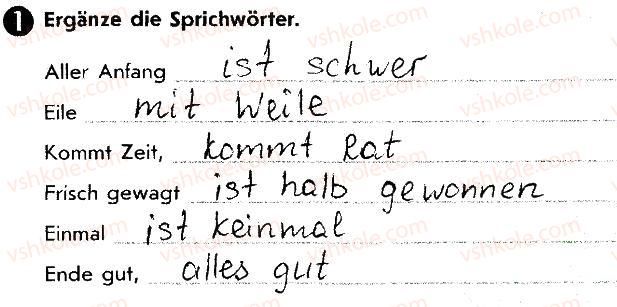 1 Ergänze die Sprichwörter.
Aller Anfang ist schwer
Eile mit Weile
Kommt Zeit, kommt Rat
Frisch gewagt ist halb gewonnen
Einmal ist keinmal
Ende gut, alles gut